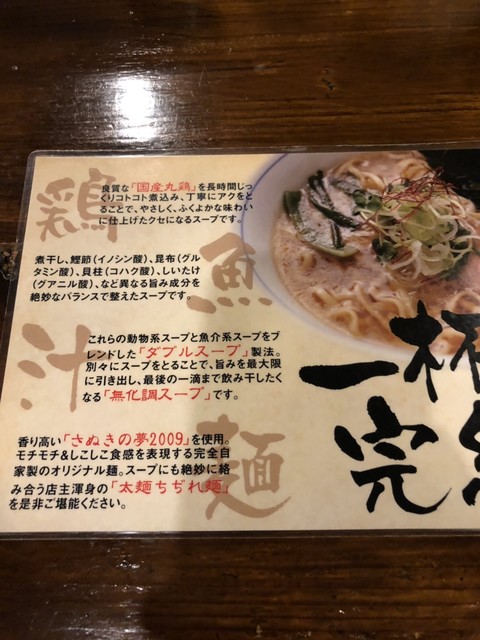 鶏
良質な「国産丸鶏」を長時間じっ
くりコトコト煮込み、丁寧にアクをと
ることで、やさしく、ふくよかな味わい
に仕上げたクセになるスープです。
魚
煮干し、鰹節(イノシン酸)、昆布(グル
タミン酸)、貝柱(コハク酸)、しいたけ
(グアニル酸)、など異なる旨み成分を
絶妙なバランスで整えたスープです。
汁
これらの動物系スープと魚介系スープを
ブレンドした「ダブルスープ」製法。
別々にスープをとることで、旨みを最大限
に引き出し、最後の一滴まで飲み干したく
なる「無化調スープ」です。
麺
香り高い「さぬきの夢2009」を使用。
モチモチ&しこしこ食感を表現する完全自
家製のオリジナル麺。スープにも絶妙に絡
み合う店主渾身の「太麺ちぢれ麺」
を是非ご堪能ください。
一杯
完